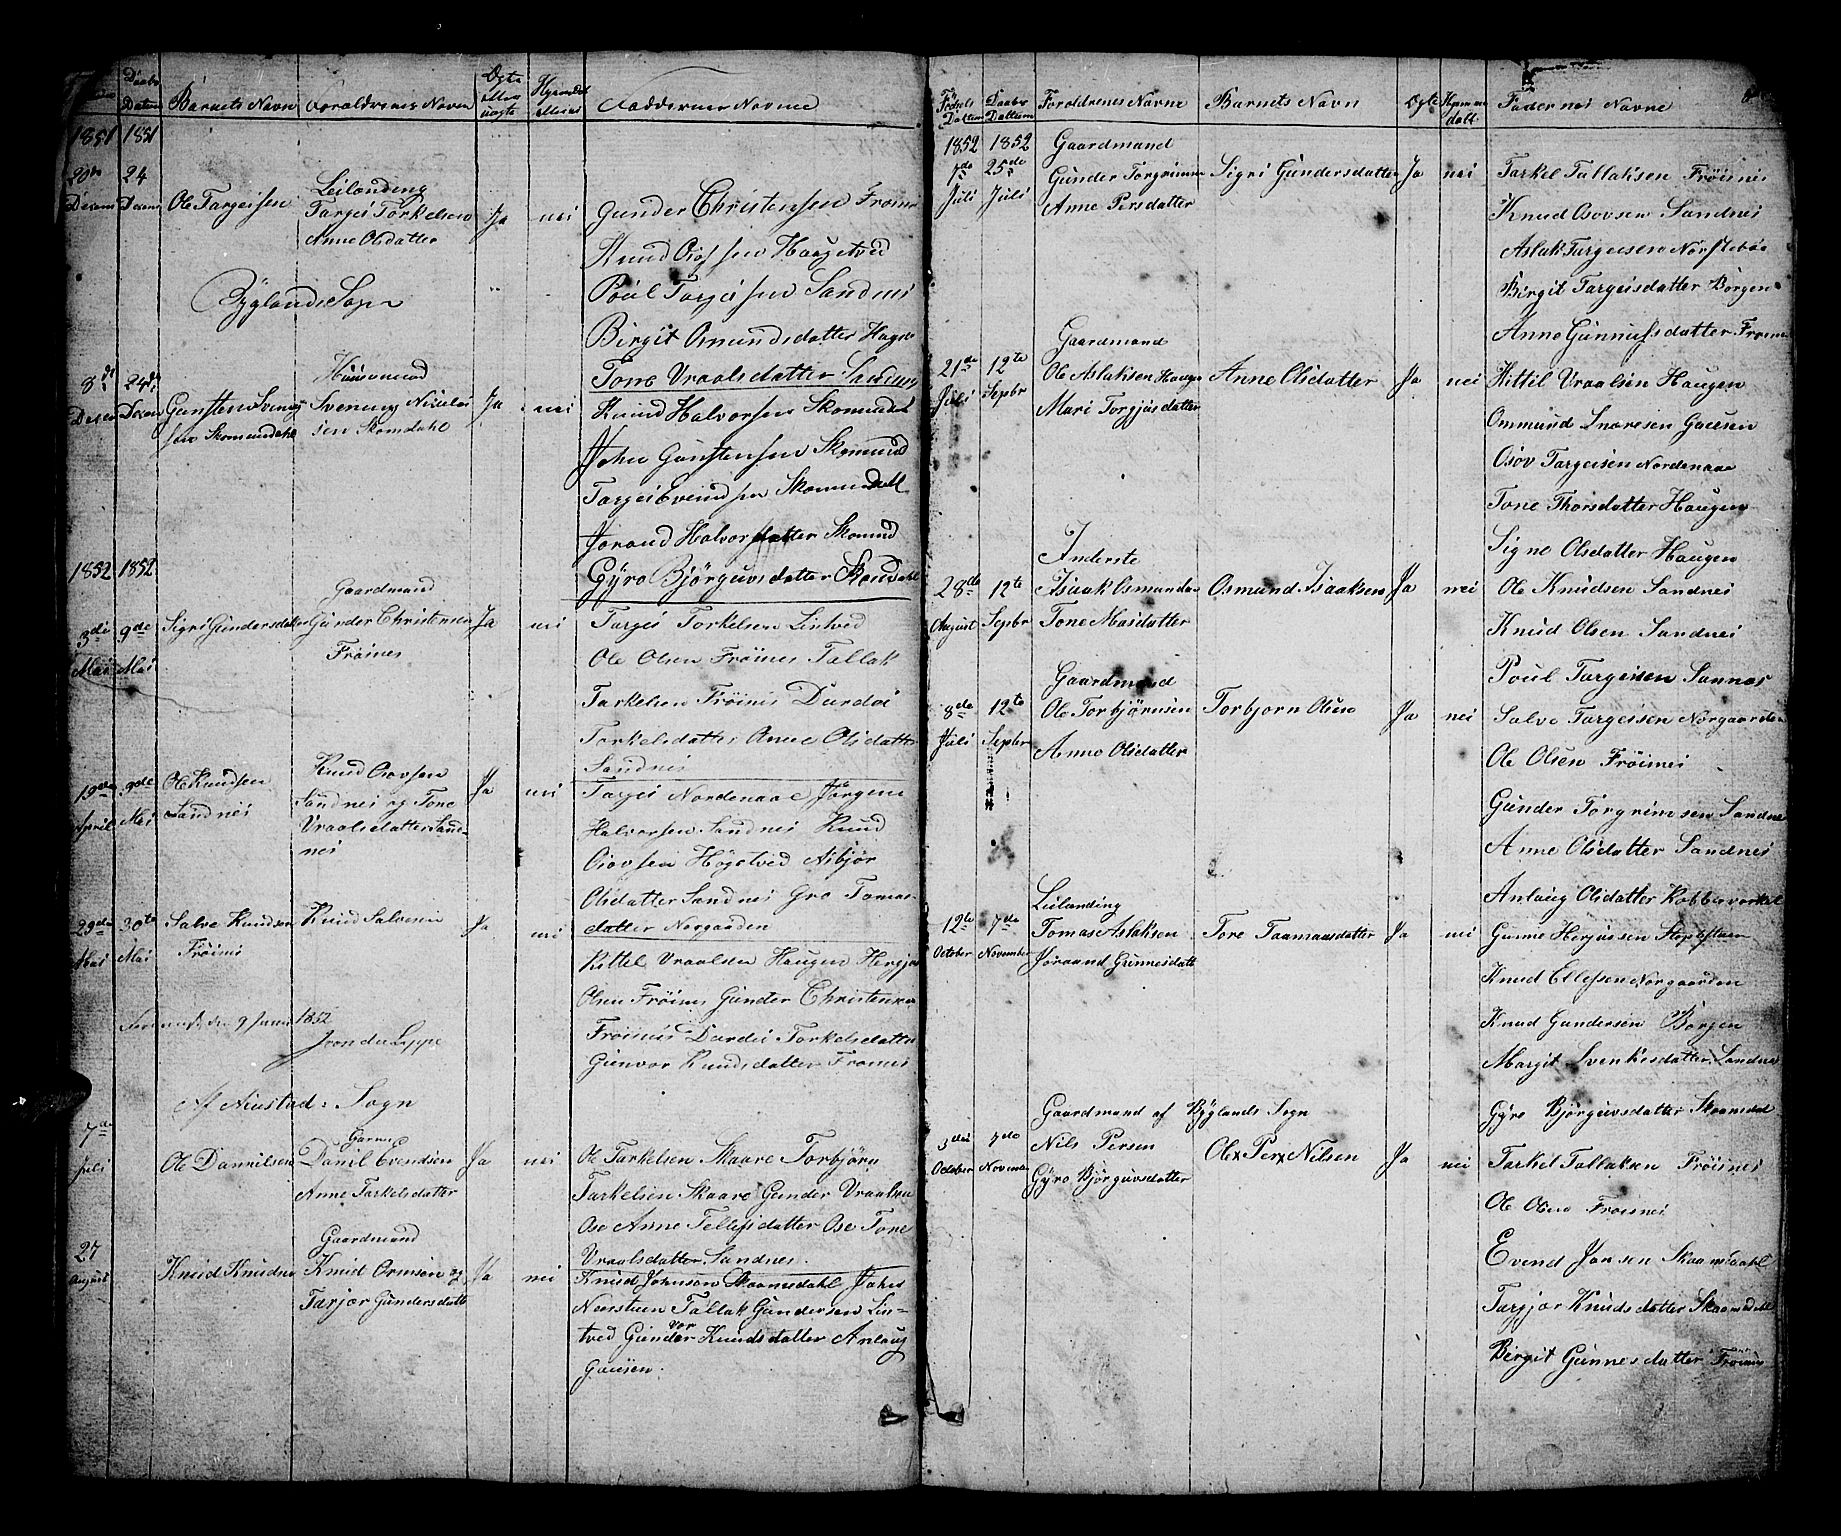 Daabs Datum
Barnets Navn
Forældrenes Navne
Ægte eller uægte
Hjemmedøbt eller ei
Faddernes Navne
1851 1851
20de Decem 24 Decem
Ole Targeisen
Leilænding
Targei Torkelsen
Anne Olsdatter
Ja nei
Gunder Christensen
Knud Osofsen Haugetved
Poul Targeisen Sandnes
Birgit Osmundsdatter
Tone Vraalsdatter Sandnes
Byglands Sogn
8de Decem 24de Decem
Gunsten Svenings
sen Skomundahl
Huusmand
Svening Nicolai
sen Skomdahl
Ja nei
Knud Halvorsen Skomdal
John Gunstensen Skomund
Targei Evindsen Skomundahl
Joraand Halvorsdatter Skomund
Gyro Bjørguvsdatter
1852 1852
3di Mai 9de Mai
Sigri Gundersdatter
Gaardmand
Gunder Christensen
Frøines
Ja nei
Targei Torkelsen Lintved
Ole Olsen Frøines Tallak
Tarkelsen Frøines Durdei
Torkelsdatter Anne Olsdatter
Sandnes
19de April 9de Mai
Ole Knudsen
Sandnes
Knud Osovsen
Sandnes og Tone
Vraalsdatter Sand-
nes
Ja nei
Targei Nordenaae Jørgen
Halvorsen Sandnes Knud
Osovsen Høgetved Asbjør
Olsdatter Sandnes Gro Tomas-
datter Norgaarden
29de Mai 30te Mai
Salve Knudsen
Frøines
Knud Salvesen
Ja nei
Kittel Vraalsen Haugen Herjus
Olsen Frøines Gunder Christensen
Frøines Durdei Torkelsdatter
Gunvor Knudsdatter Frøines
den 9 Juni 1852
Af Austad: Sogn
7de Juli
Ole Danielsen
Daniel Evendsen
Anne Tarkelsdatter
Ja nei
Ole Tarkelsen Skaare Torbjørn
Tarkelsen Skaare Gunder Vraalsen
Ose Anne Tellefsdatter Ose Tone
Vraalsdatter Sandnes.
27 August
Knud Knudsen
Gaardmand
Knud Ormsen og
Tarjer Gundersdatter
Ja nei
Knud Johnsen Skaamedahl
Tallak Gundersen Lin-
tved Gundvor Knudsdatter Anlaug
Gausen.
Fødsels Dattum
Daabs Dattum
Foroldrenes Navne
Barnets Navn
Ægte
Hjemmedøbt
Fadernes Navne
1852 1852
7de Juli 25de Juli
Gaardmand
Gunder Torgrimsen
Anne Persdatter
Sigri Gundersdatter
Ja nei
Tarkel Tallaksen Frøisnes
Knud Osovsen Sandnes
Aslak Targeisen Norstebøe
Birgit Targeisdatter Borgen
Anne Gunnufsdatter
21de Juli 12te Sepbr
Gaardmand
Ole Aslaksen Haugen
Mari Torgjusdatter
Anne Olsdatter
Ja nei
Kittil Vraalsen Haugen
Ommund Snaresen Gausen
Osov Targeisen Nordenaae
Tone Thorsdatter Haugen
Signe Olsdatter Haugen
28de August 12te Sepbr
Inderste
Isaak Osmundsen
Tone Masdatter
Osmund Isaaksen
Ja nei
Ole Knudsen Sandnes
Knud Olsen Sandnes
Poul Targeisen Sannes
8de Juli 12te Sepbr
Gaardmand
Ole Torbjørnsen
Anne Olsdatter
Torbjorn Olsen
Ja nei
Salve Targeisen Norgaarden
Ole Olsen Frøisnes
Gunder Torgrimsen Sandnes
Anne Olsdatter Sandnes
Anlaug Olsdatter Kobberverket
12te October 7de November
Leilanding
Tomas Aslaksen
Joraand Gunnesdatt
Tore Taamasdatter
Ja nei
Gunne Herjussen
Knud Ellefsen Norgaarden
Knud Gundersen Borgen
Margit Svenkesdatter Sandnes
Gyro Bjørguvsdatter Skaamdal
3die October 7de November
Gaardmand af Byglands Sogn
Nils Persen
Gyro Bjørguvsdatter
Ole x Per x Nilsen
Ja nei
Tarkel Tallaksen Frøisnes
Ole Olsen Frøisnes
Evend Jonsen Skaamedahl
Targjer Knudsdatter Skaamedahl
Birgit Gunnesdatter Frøisnes